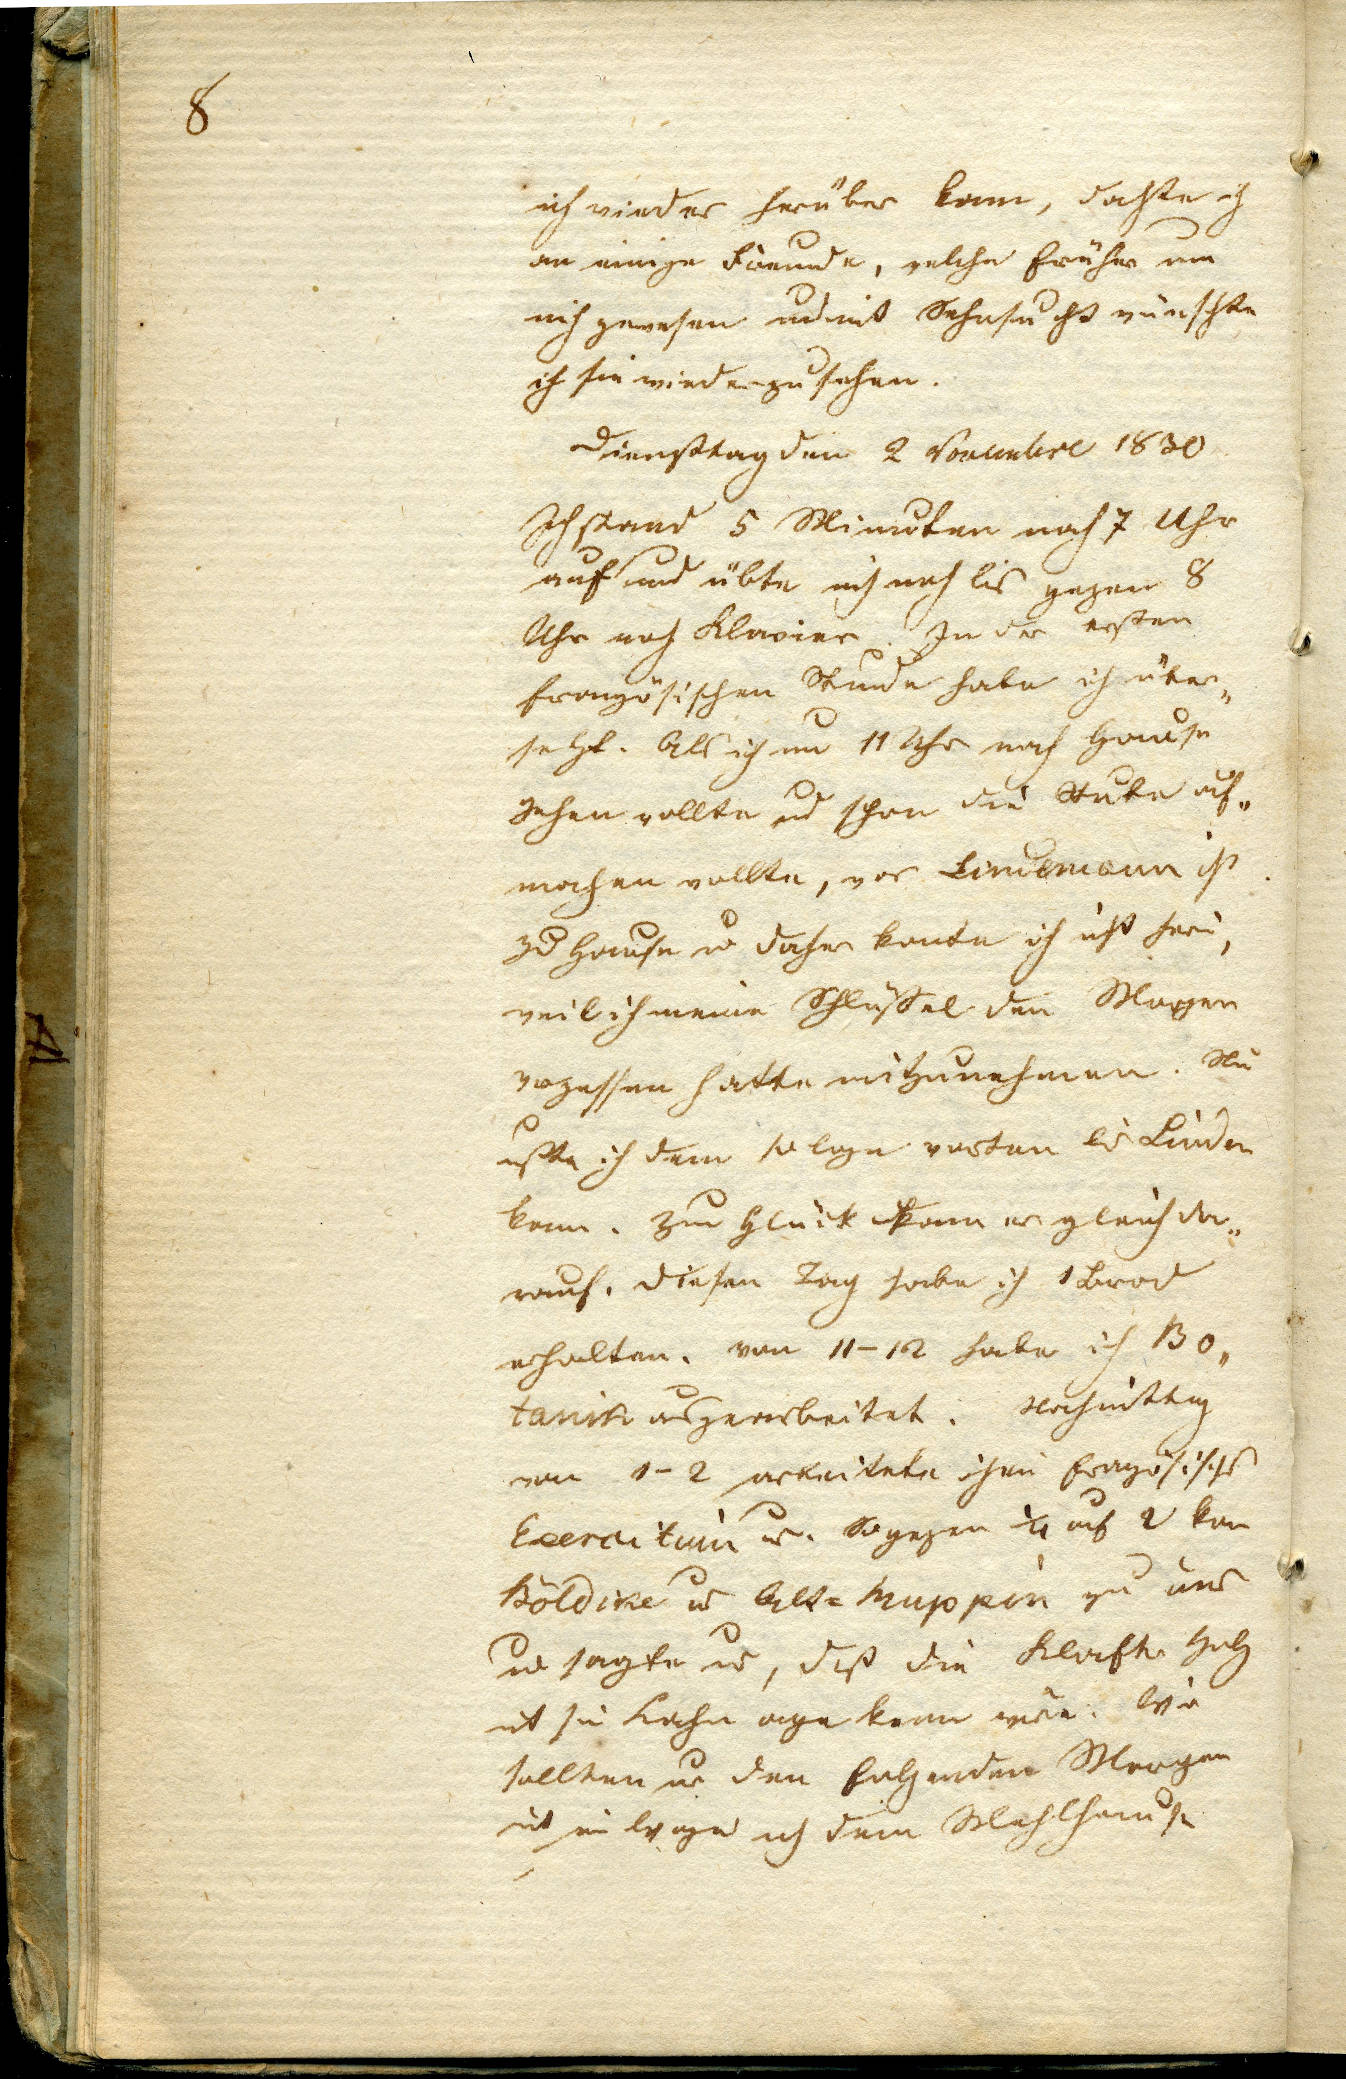 8
ich wieder herüber kam, dachte ich
an einige Freunde, welche früher um
mich gewesen und mit Sehnsucht wünschte
ich sie wiederzusehen.
Diensttag den 2 Novembre 1830
Ich stand 5 Minuten nach 7 Uhr
auf und übte mich noch bis gegen 8
Uhr noch Klavier. In der ersten
französischen Stunde habe ich über„
setzt. Als ich um 11 Uhr nach Hause
gehen wollte ud schon die Stube auf„
machen wollte, war Lindemann ist
zu Hause u daher konte ich nicht herein,
weil ich meine Schlüssel den Morgen
vergessen hatte mitzunehmen. Nu
mußte ich denn so lange warten bis Linden
kam. Zum Glück kam er gleich da„
rauf. Diesen Tag habe ich 1 Brod
erhalten. Von 11-12 habe ich Bo„
tanik ausgearbeitet. Nachmittag
von 1-2 arbeitete ich ein französisches
Exercitium. So gegen ¼ auf 2 kam
Böldike u Alt= Ruppin zu uns
u sagte uns, daß die Klafter Holz
mit sie Kahn angekommen wäre. Wir
sollten nur den folgenden Morgen
mit ein Wagen nach dem Mehlhause